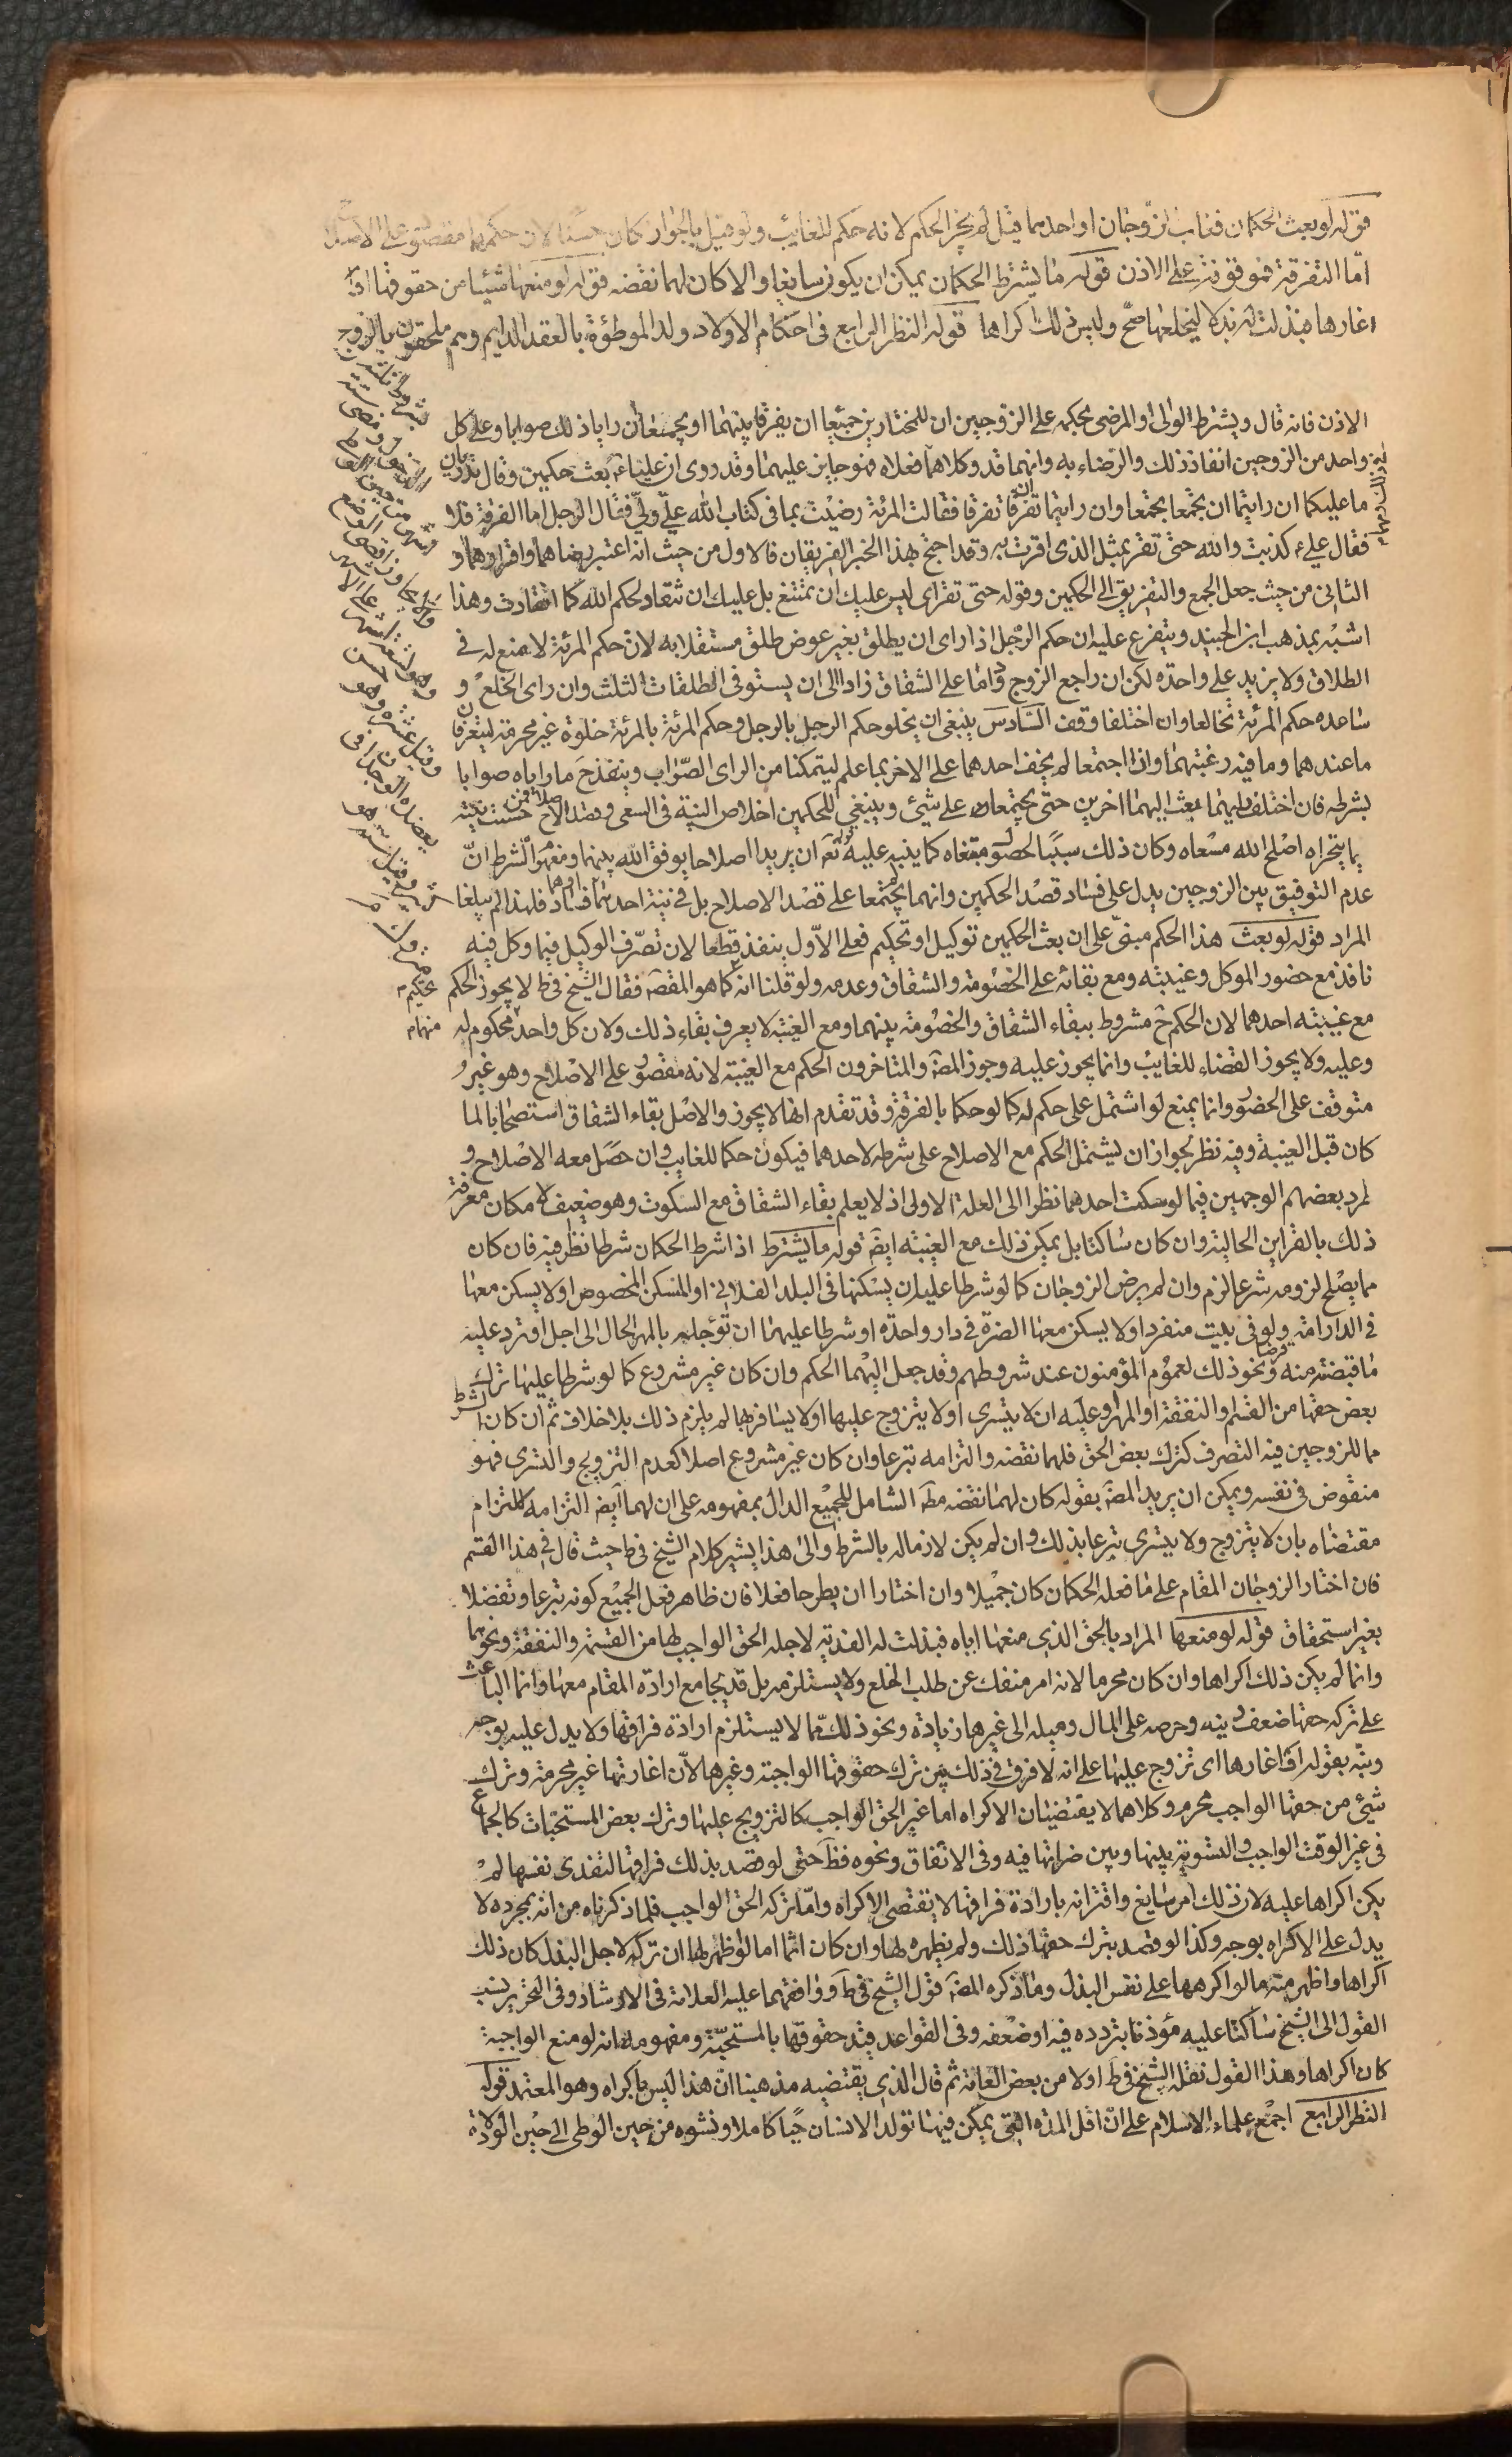 قوله لو بعث الحكمان فغاب الزوجان او احدهما قيل لم يجز الحكم لانه حكم للغايب ولو قيل بالجواز كان حسنا لان حكمهما مقصور على الاصلاح
امّا التفرقة فموقوفة على الاذن قوله ما يشترط الحكمان يمكن ان يكون سايغا والا كان لهما نقضه قوله لو منعها شيئا من حقوقها او
اغارها فبذلت له بذلا ليخلعها صحّ وليس ذلك اكراها قوله النظر الرابع فى احكام الاولاد ولد الموطؤة بالعقد الدايم وهم ملحقون بالزوج
الاذن فانه قال ويشترط الوالى او المرضى بحكمه على الزوجين ان للمختارين جميعا ان يفرقا بينهما او يجمعا ان رايا ذلك صوابا وعلى كل
واحد من الزوجين انفاذ ذلك والرضاء به وانهما قد وكلاهما فعلاه فهو جايز عليهما وقد روى ان عليا ع بعث حكمين وقال تدريان
ما عليكما ان رايتما ان يجتمعا يجتمعا وان رايتما ان تفرقا تفرقا فقالت المرئة رضيت بما فى كتاب الله علىّ ولىّ فقال الرجل اما الفرقة فلا
فقال على ع كذبت والله حتى تقر بمثل الذى اقرت به وقد احتج بهذا الخبر الفريقان فالاول من حيث انه اعتبر رضاهما واقرارهما و
الثانى من حيث جعل الجمع والتفريق الى الحكمين وقوله حتى تقر اى ليس عليك ان تمتنع بل عليك ان تنقاد لحكم الله كما انقادت وهذا
اشبه بمذهب ابن الجنيد ويتفرع عليه ان حكم الرجل اذا راى ان يطلق بغير عوض طلق مستقلا به لان حكم المرئة لا صنع له فى
الطلاق ولا يزيد على واحدة لكن ان راجع الزوج وداما على الشقاق زاد الى ان يستوفى الطلقات الثلث وان راى الخلع و
ساعده حكم المرئة تخالعا وان اختلفا وقف السادس ينبغى ان يخلو حكم الرجل بالرجل وحكم المرئة بالمرئة خلوة غير محرمة ليتعرفا
ما عندهما وما فيه رغبتهما واذا اجتمعا لم يخف احدهما على الاخر بما علم ليتمكنا من الراى الصواب وينفذ ح ما راياه صوابا
بشرطه فان اختلف رايهما بعث اليهما اخرين حتى يجتمعا على شيئ وينبغى للحكمين اخلاص النية فى السعى وقصد الاصلاح فمن حسنت نيته
بما يتحراه اصلح الله مسعاه وكان ذلك سببا لحصول مبتغاه كما ينبه عليه قوله تع ان يريدا اصلاحا يوفق الله بينهما ومفهوم الشرط انّ
عدم التوفيق بين الزوجين يدل على فساد قصد الحكمين وانهما لم يجتمعا على قصد الاصلاح بل فى نية احدهما او هما فساد فلهذا لم يبلغا
المراد قوله لو بعث هذا الحكم مبنى على ان بعث الحكمين توكيل او تحكيم فعلى الاول ينفذ قطعا لان تصرف الوكيل فيما وكل فيه
نافذ مع حضور الموكل وغيبته ومع بقائه على الخصومة والشقاق وعدمه ولو قلنا انه تحكيم كما هو المقصه فقال الشيخ فى ط لا يجوز الحكم
مع غيبته احدهما لان الحكم ح مشروط ببقاء الشقاق والخصومة بينهما ومع الغيبة لا يعرف بقاء ذلك ولان كل واحد منهما محكوم له
وعليه ولا يجوز القضاء للغايب وانما يجوز عليه وجوز المصه والمتاخرون الحكم مع الغيبة لانه مقصور على الاصلاح وهو غير
متوقف على الحضور وانما يمنع لو اشتمل على حكم له كما لو حكما بالفرقة وقد تقدم انها لا يجوز والاصل بقاء الشقاق استصحابا لما
كان قبل الغيبة وفيه نظر لجواز ان يشتمل الحكم مع الاصلاح على شرط لاحدهما فيكون حكما للغايب وان حصل معه الاصلاح و
لمرد بعضهم الوجهين فيما لو سكت احدهما نظرا الى العلة الاولى اذ لا يعلم بقاء الشقاق مع السكوت وهو ضعيف لامكان معرفة
ذلك بالقراين الحالية وان كان ساكتا بل يمكن ذلك مع الغيبة ايضا قوله ما يشترط اذا شرط الحكمان شرطا نظر فيه فان كان
مما يصلح لزومه شرعا لزم وان لم يرض الزوجان كما لو شرطا عليه ان يسكنها فى البلد الفلانى او المسكن المخصوص او لا يسكن معها
فى الدار امة ولو فى بيت منفرد او لا يسكن معها الضرة فى دار واحدة او شرطا عليهما ان تؤجله بالمهر الحال الى اجل او ترد عليه
ما قبضته منه قرضا ونحو ذلك لعموم المؤمنون عند شروطهم وقد جعل اليهما الحكم وان كان غير مشروع كما لو شرطا عليها ترك
بعض حقها من القسم او النفقة او المهر او عليه ان لا يتسرى او لا يتزوج عليها او لا يسافر بها لم يلزم ذلك بلا خلاف ثم ان كان الشرط
مما للزوجين فيه التصرف كترك بعض الحق فلهما نقضه والتزامه تبرعا وان كان غير مشروع اصلا كعدم التزويج والتسرى فهو
منقوض فى نفسه ويمكن ان يريد المصه بقوله كان لهما نقضه مطه الشامل للجميع الدال بمفهومه على ان لهما ايضا التزامه كالتزام
مقتضاه بان لا يتزوج ولا يتسرى تبرعا بذلك وان لم يكن لازما له بالشرط والى هذا يشير كلام الشيخ فى ط حيث قال فى هذا القسم
فان اختار الزوجان المقام على ما فعله الحكمان كان جميلا وان اختارا ان يطرحا فعلا فان ظاهر فعل الجميع كونه تبرعا وتفضلا
بغير استحقاق قوله لو منعها المراد بالحق الذى منعها اياه فبذلت له الفدية لاجله الحق الواجب لها من القسمة والنفقة ونحوهما
وانما لم يكن ذلك اكراها وان كان محرما لانه امر منفك عن طلب الخلع ولا يستلزمه بل قد يجامع ارادة المقام معها وانما الباعث
على تركه حقها ضعف دينه وحرصه على المال وميله الى غيرها زيادة ونحو ذلك مما لا يستلزم ارادة فراقها ولا يدل عليه بوجه
ونبّه بقوله او اغارها اى تزوج عليها على انه لا فرق فى ذلك بين ترك حقوقها الواجبة وغيرها لان اغارتها غير محرمة وترك
شئ من حقها الواجب محرم وكلاهما لا يقتضيان الاكراه اما غير الحق الواجب كالتزويج عليها وترك بعض المستحبات كالجماع
فى غير الوقت الواجب والتسوية بينها وبين ضراتها فيه وفى الانفاق ونحوه فظ حتى لو قصد بذلك فراقها لتفدى نفسها لم
يكن اكراها عليه لان ذلك امر سايغ واقترانه بارادة فراقها لا يقتضى الاكراه وامّا تركه الحق الواجب فلما ذكرناه من انه بمجرده لا
يدل على الاكراه بوجه وكذا لو قصد بترك حقها ذلك ولم يظهره لها وان كان اثما اما لو اظهر لها ان تركه لاجل البذل كان ذلك
اكراها واظهر منه ما لو اكرهها على نفس البذل وما ذكره المصه قول الشيخ فى ط ووافقهما عليه العلامة فى الارشاد وفى التحرير نسب
القول الى الشيخ ساكتا عليه مؤذنا بتردده فيه او ضعفه وفى القواعد قيد حقوقها بالمستحبة ومفهومه انه لو منع الواجبة
كان اكراها وهذا القول نقله الشيخ فى ط اولا من بعض العامة ثم قال الذى يقتضيه مذهبنا ان هذا ليس باكراه وهو المعتمد قوله
النظر الرابع اجمع علماء الاسلام على ان اقل المدة التى يمكن فيها تولد الانسان حيا كاملا ونشوه من حين الوطى الى حين الولادة